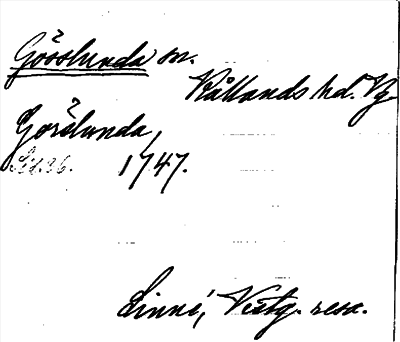 Gösslunda sn.
Kållands hd. Vg.
Gorslunda,
Sid. 26. 1747.
Linné, Västg. resa.